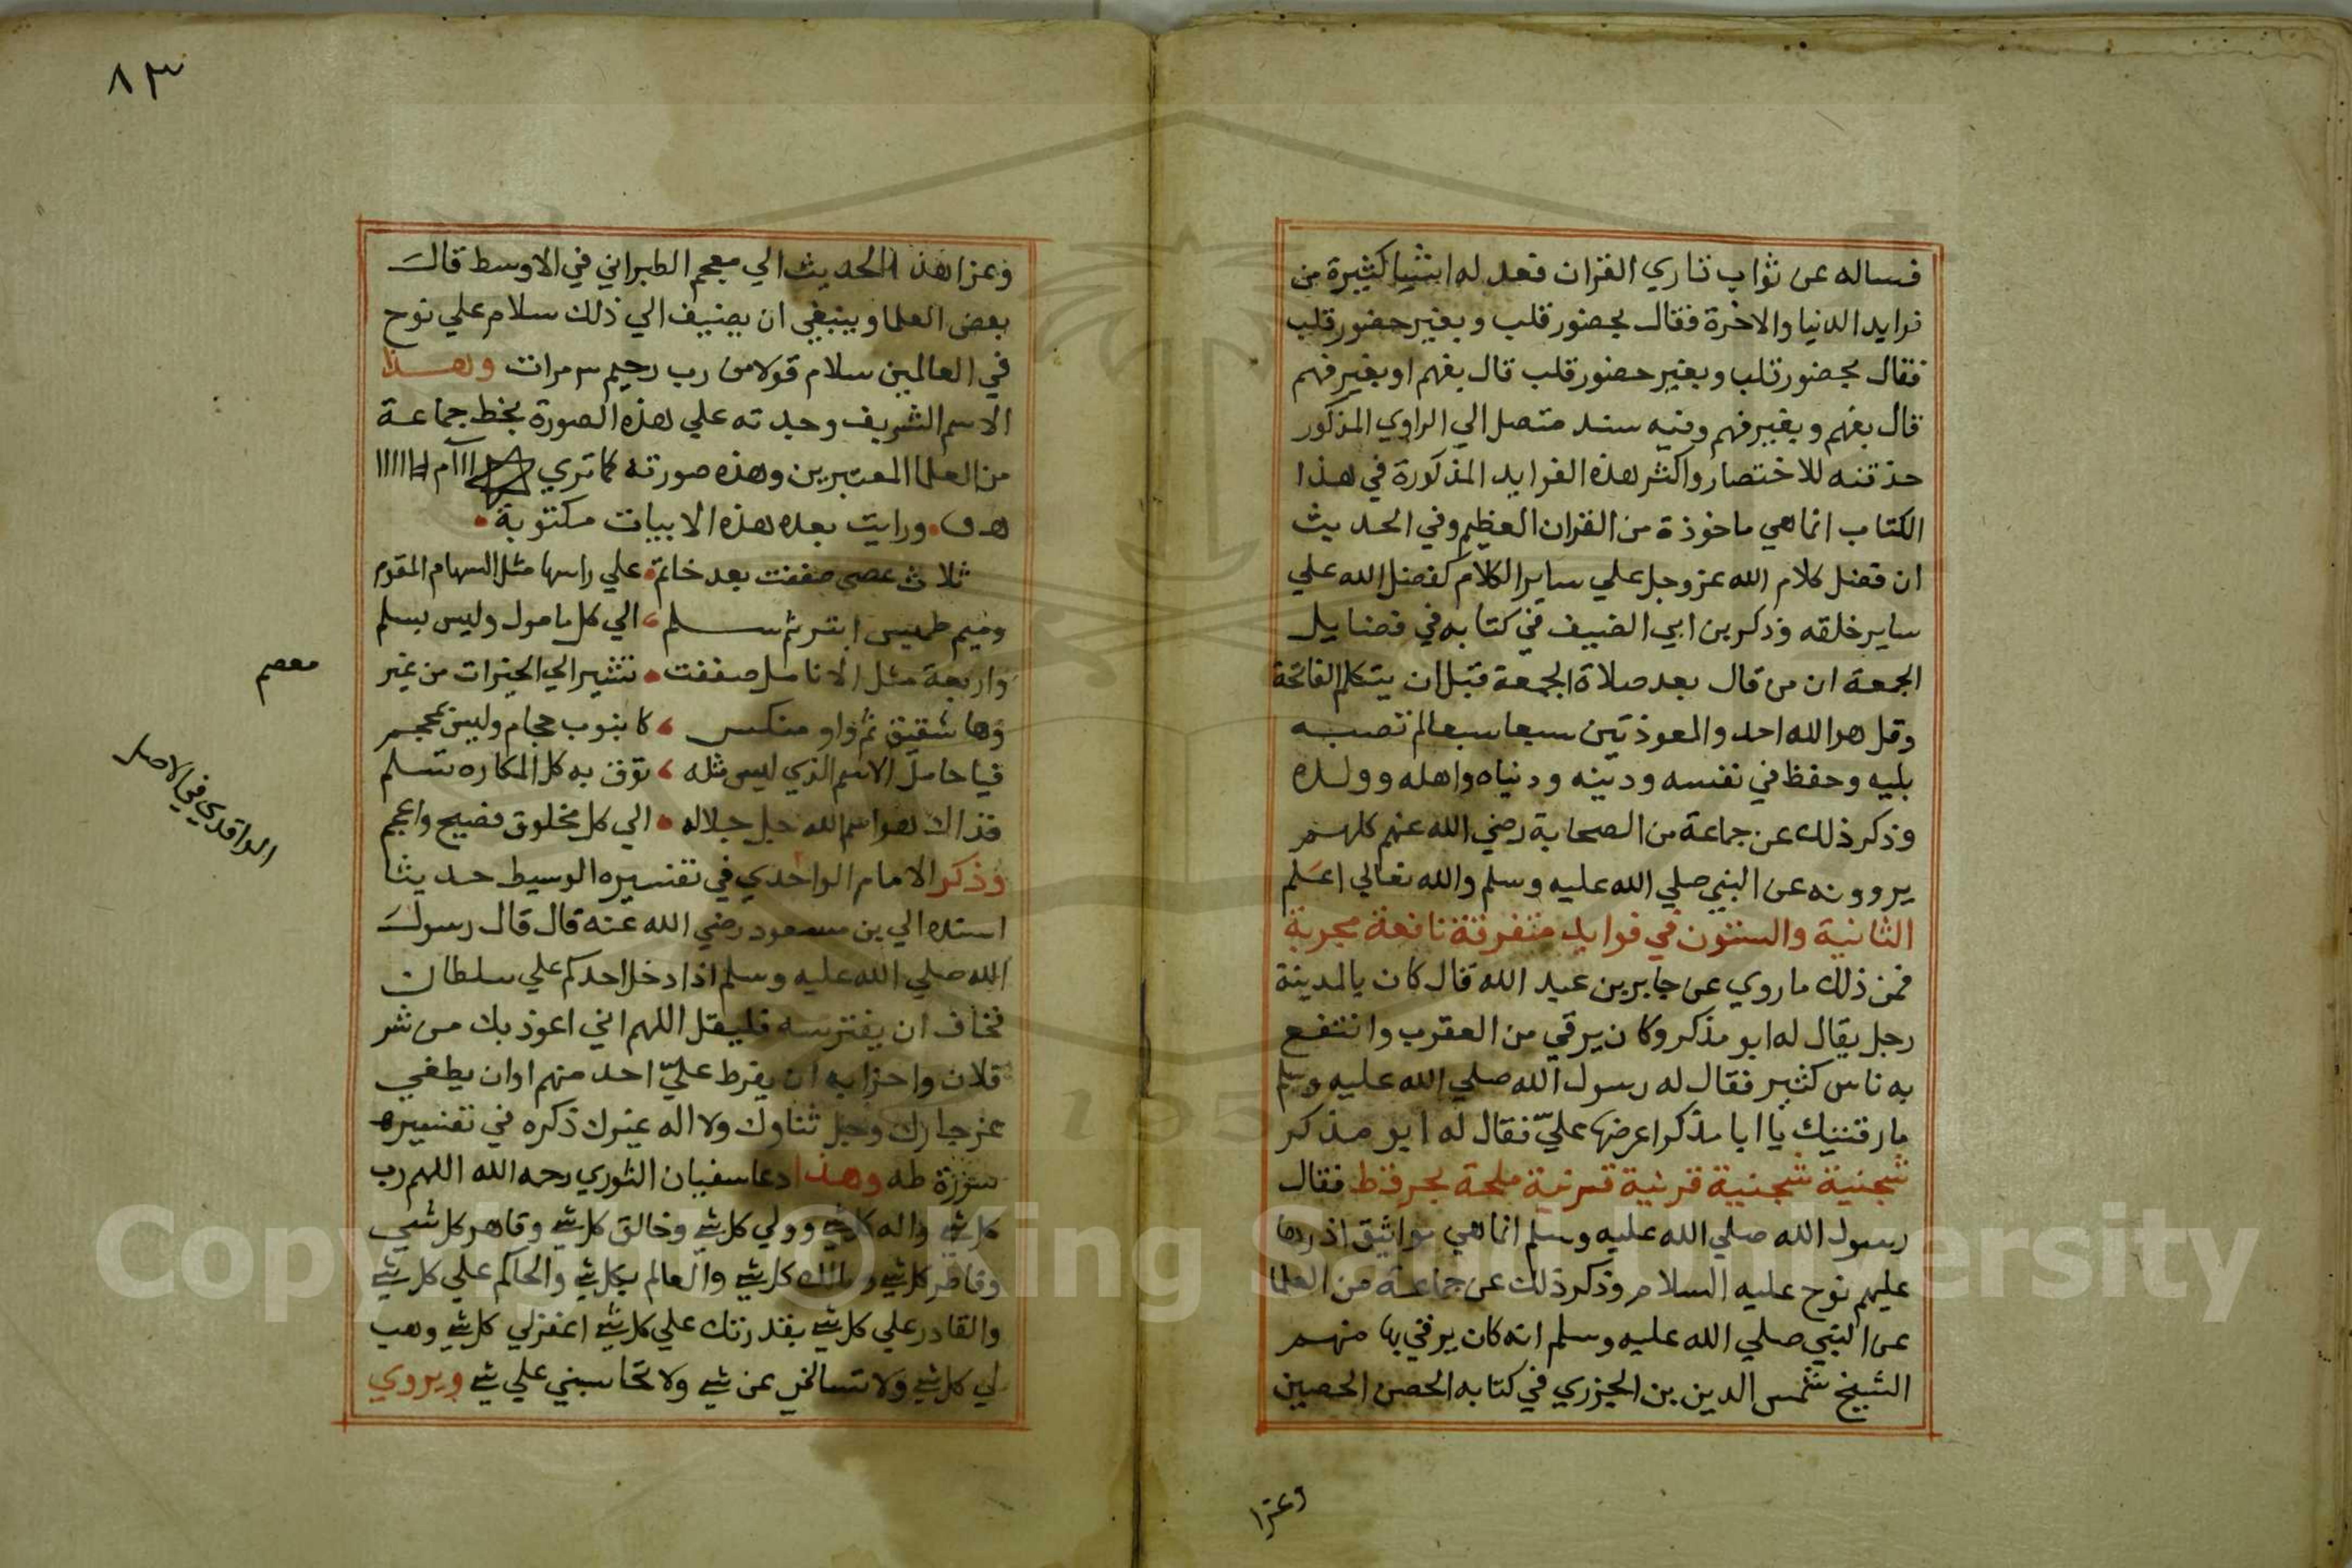 فساله عن ثواب قاري القران فعد له اشيا كثيرة من
فوايد الدنيا والاخرة فقال بحضور قلب وبغير حضور قلب
فقال بحضور قلب وبغير حضور قلب قال بفهم او بغير فهم
قال بفهم وبغير فهم وفيه سند متصل الي الراوي المذكور
حذفته للاختصار واكثر هذه الفوايد المذكورة في هذا
الكتاب انما هي ماخوذة من القران العظيم وفي الحديث
ان فضل كلام الله عز وجل علي ساير الكلام كفضل الله علي
ساير خلقه وذكر بن ابي الضيف في كتابه في فضايل
الجمعة ان من قال بعد صلاة الجمعة قبل ان يتكلم الفاتحة
وقل هو الله احد والمعوذتين سبعا سبعا لم تصبه
بليه وحفظ في نفسه ودينه ودنياه واهله وولده
وذكر ذلك عن جماعة من الصحابة رضي الله عنهم كلهم
يروونه عن النبي صلي الله عليه وسلم والله تعالي اعلم
الثانية والستون في فوايد متفرقة نافعة مجربة
فمن ذلك ما روي عن جابر بن عبد الله قال كان بالمدينة
رجل يقال له ابو مذكر وكان يرقي من العقرب وانتفع
به ناس كثير فقال له رسول الله صلي الله عليه وسلم
ما رقيتك يا ابا مذكر اعرضها عليّ فقال له ابو مذكر
شجنية شجنية قرنية قرنية ملحة بحر قفط فقال
رسول الله صلي الله عليه وسلم انما هي مواثيق اخذها
عليهم نوح عليه السلام وذكر ذلك عن جماعة من العلما
عن النبي صلي الله عليه وسلم انه كان يرقي بها منهم
الشيخ شمس الدين بن الجزري في كتابه الحصن الحصين
وعزا
٨٣
وعزا هذا الحديث الي معجم الطبراني في الاوسط قال
بعض العلما وينبغي ان يضيف الي ذلك سلام علي نوح
في العالمين سلام قولا من رب رحيم ٣ مرات وهذا
الاسم الشريف وجدته علي هذه الصورة بخط جماعة
من العلما المعتبرين وهذه صورته كما تري
ورايت بعده هذه الابيات مكتوبة
ثلاث عصي صففت بعد خاتم علي راسها مثل السهام المقوم
وميم طميس ابتر ثم سلم الي كل مامول وليس بسلم
واربعة مثل الانامل صففت تشير الي الخيرات من غير
معصم
وها شقيق ثم واو منكس كانبوب حجام وليس بمحجم
فيا حامل الاسم الذي ليس مثله توق به كل المكاره تسلم
فذاك هو اسم الله جل جلاله الي كل مخلوق فصيح واعجم
وذكر الامام الواحدي في تفسيره الوسيط حديثا
الواقدي في الاصل
اسنده الي بن مسعود رضي الله عنه قال قال رسول
الله صلي الله عليه وسلم اذا دخل احدكم علي سلطان
تخاف ان يفترسه فليقل اللهم اني اعوذ بك من شر
فلان واحزابه ان يفرط عليّ احد منهم او ان يطغي
عز جارك وجل ثناوك ولا اله غيرك ذكره في تفسيره
سورة طه وهذا دعا سفيان الثوري رحمه الله اللهم رب
كل شي واله كل شي وولي كل شي وخالق كل شي وقاهر كل شي
وفاطر كل شي ومالك كل شي والعالم بكل شي والحاكم علي كل شي
والقادر علي كل شي بقدرتك علي كل شي اغفر لي كل شي وهب
لي كل شي ولا تسالني عن شي ولا تحاسبني علي شي ويروي
Copyright © King Saud University
195